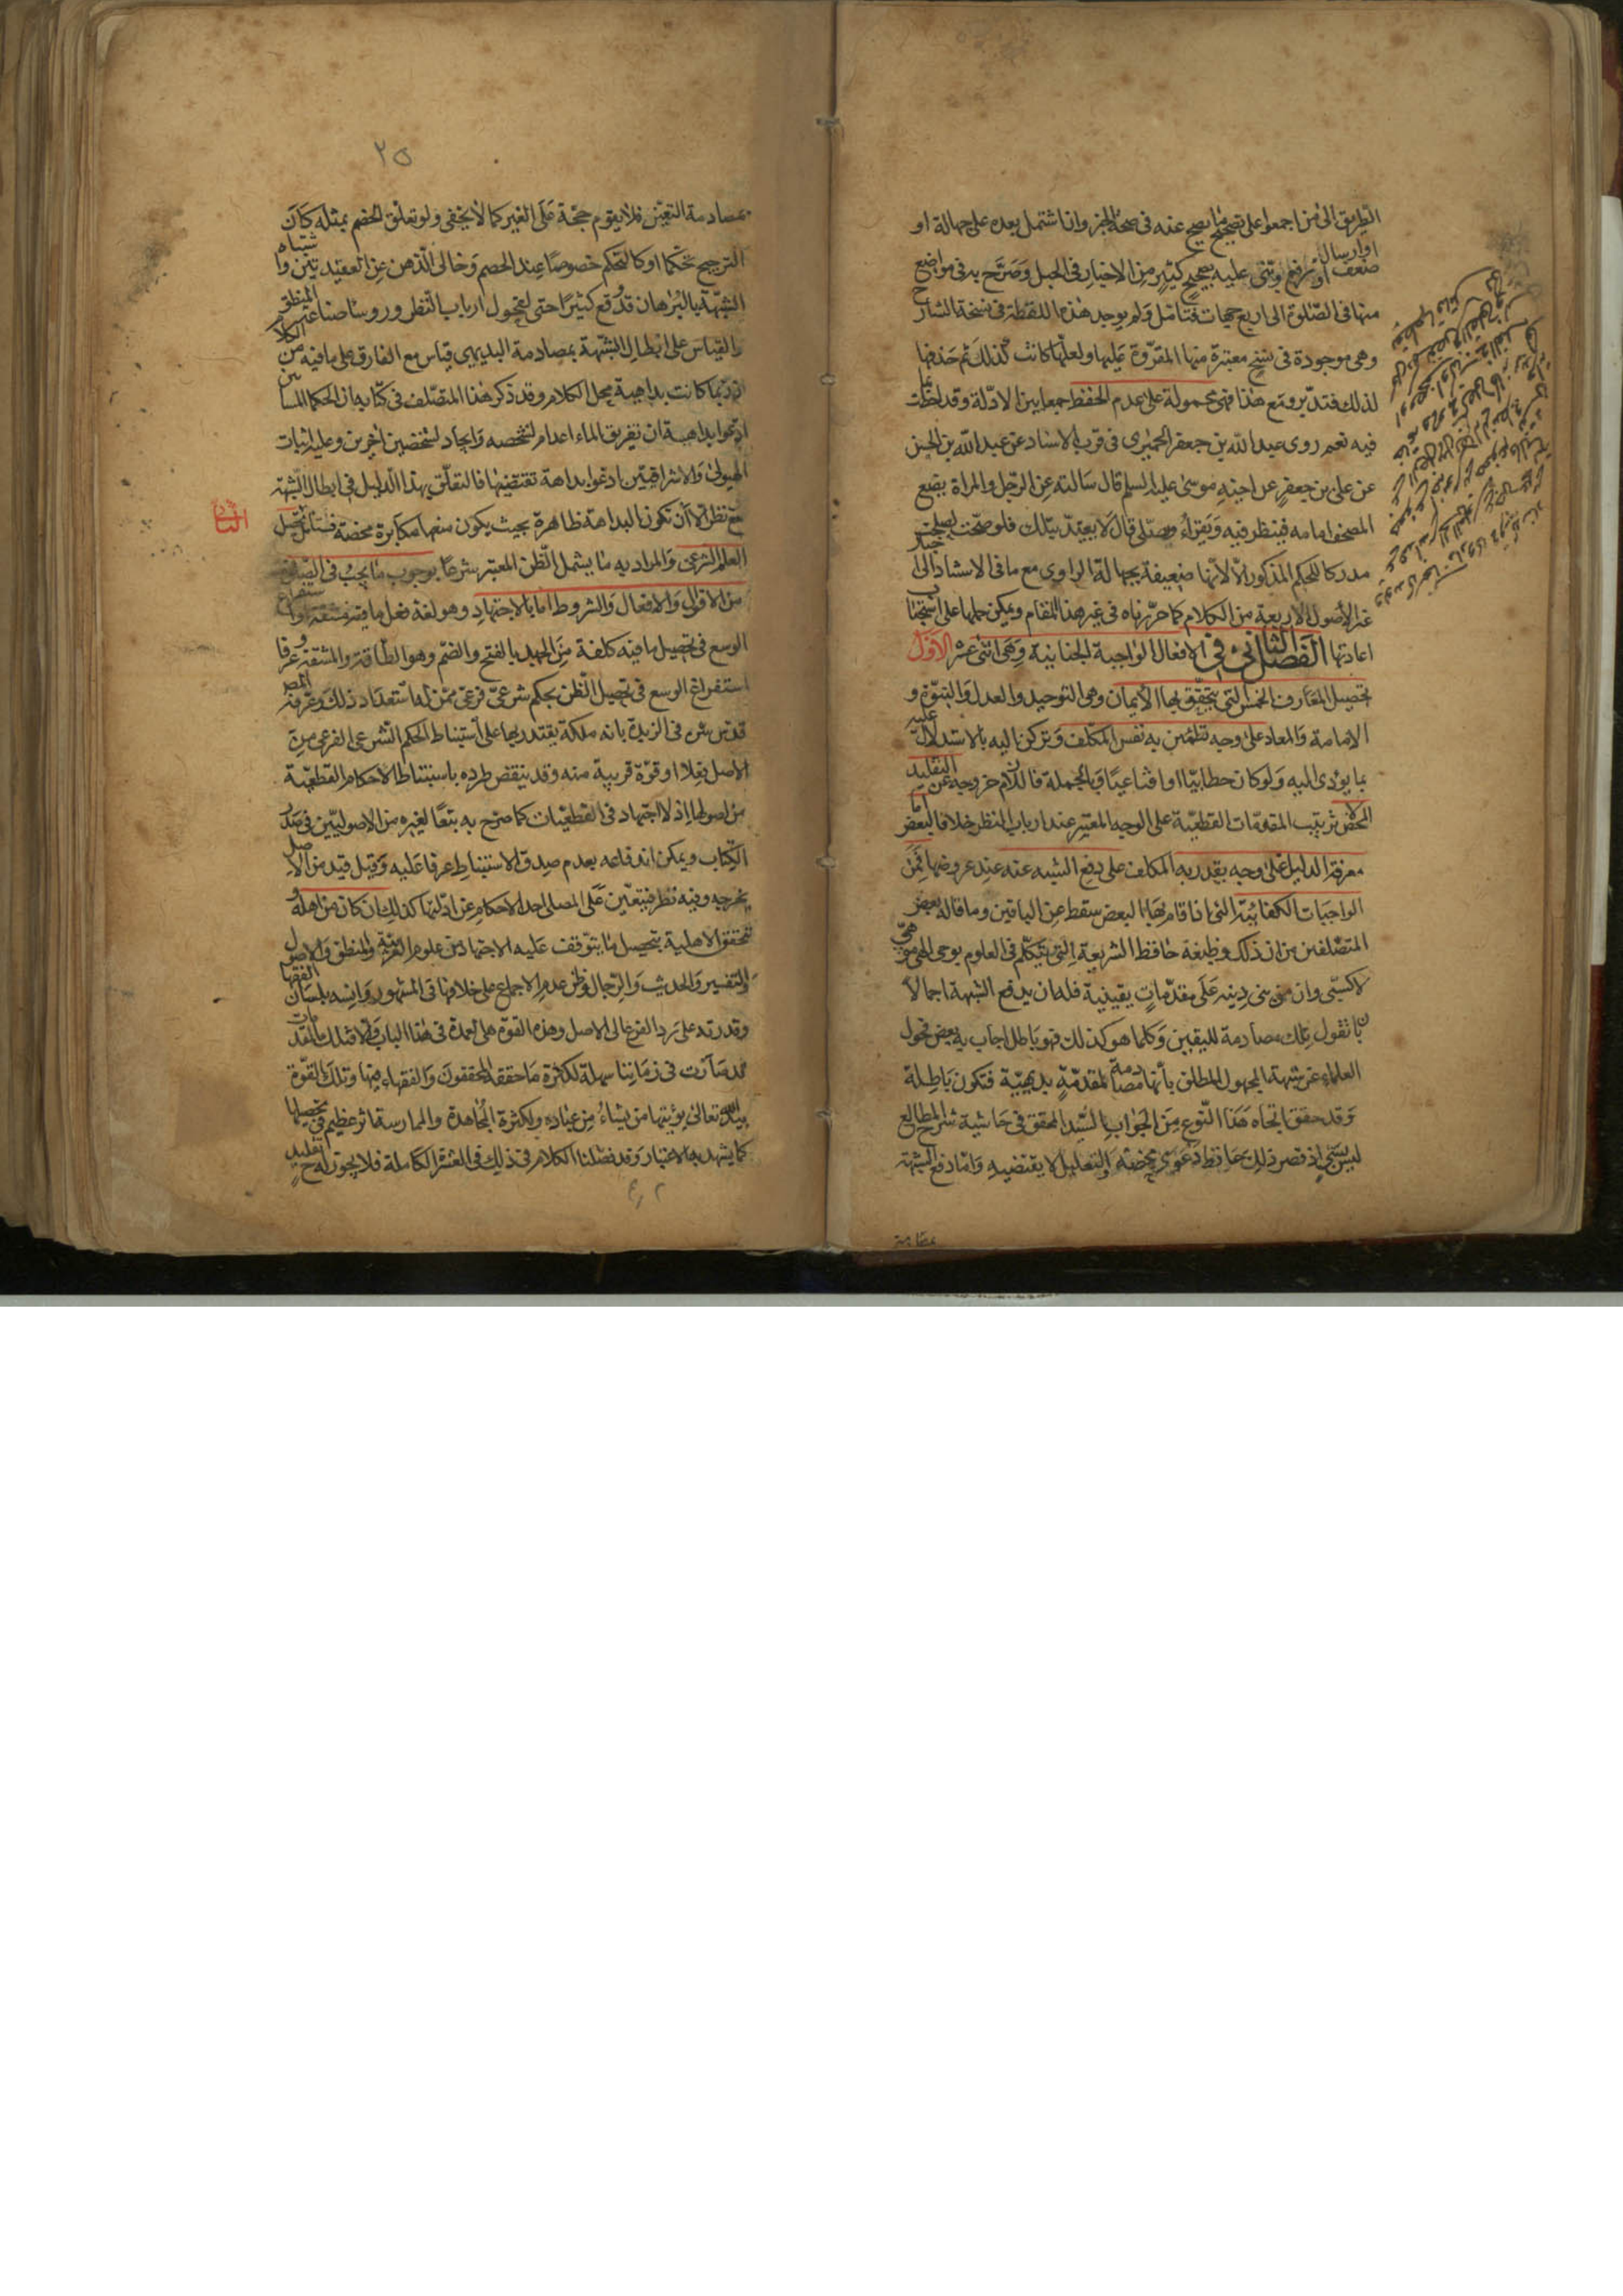 الطريق الى من اجمعوا على تصحيح ما يصح عنه في صحة الخبر وان اشتمل بعده على جهالة او
ضعف او ارسال او رفع وبنى عليه تصحيح كثير من الاخبار في الحبل وصرح به في مواضع
منها في الصلوة الى اربع جهات فتامل ولم يوجد هذه اللفظة في نسخة الشارح
وهي موجودة في نسخ معتبرة منها المقروة عليه ولعلها كانت كذلك ثم حذفها
لذلك فتدبر ومع هذا فهي محمولة على عدم الحفظ جمعا بين الادلة وقد لحظت ما
فيه نعم روى عبد الله بن جعفر الحميرى في قرب الاسناد عن عبد الله بن الحسن
عن على بن جعفر عن اخيه موسى عليه السلم قال سالته عن الرجل والمراة يضع
المصحف امامه فينظر فيه ويقراء ويصلى قال لا يعتد بتلك فلو صحت لصلحت
مدركا للحكم المذكور الا انها ضعيفة بجهالة الراوي مع ما في الاستناد الى
غير الأصول الاربعة من الكلام كما حررناه في غير هذا المقام ويمكن حملها على استحباب
اعادتها الفصل الثانى في الافعال الواجبة الجنانية وهى اثنى عشر الاول
تحصيل المعارف الخمس التي يتحقق بها الايمان وهي التوحيد والعدل والنبوة و
الامامة والمعاد على وجه تطمئن به نفس المكلف وتركن اليه بالاستدلال عليه
بما يؤدى اليه ولو كان خطابيا او اقناعيا وبالجملة فاللازم خروجه عن التقليد
المحض لا ترتيب المقدمات القطعية على الوجه المعتبر عند ارباب النظر خلافا لبعض اما
معرفة الدليل على وجه يقدر به المكلف على دفع الشبه عنه عند عروضها فمن
الواجبات الكفائية التي اذا قام بها البعض سقط عن الباقين وما قاله بعض
المتصلفين من ان ذلك وظيفة حافظ الشريعة التي تتكلم في العلوم بوحى الهى
لا كسبى وان من بنى دينه على مقدمات يقينية فله ان يدفع الشبهة اجمالا
بان تقول تلك مصادمة لليقين وكلما هو كذلك فهو باطل اجاب به بعض فحول
العلماء عن شبهة المجهول المطلق بأنها مصادمة لمقدمة بديهية فتكون باطلة
وقد حقق اتجاه هذا النوع من الجواب السيد المحقق في حاشية شرح المطالع
ليس بشئ اذ قصر ذلك بحافظ دعوى محضة والتعليل لا يقتضيه واما دفع الشبهة
بمصادمة
٢٥
بمصادمة التعين فلا يقوم حجة على الغير كما لا يخفى ولو تعلق الخصم بمثله كان
الترجيح تحكما او كالتحكم خصوصا عند الخصم وخالى الذهن عن العقيدتين واشتباه
الشبهة بالبرهان قد وقع كثيرا حتى لفحول ارباب النظر وروساء صناعتى المنطق
والقياس على ابطال الشبهة بمصادمة البديهي قياس مع الفارق على ما فيه من الكلام
اذ ربما كانت بداهية محل الكلام وقد ذكر هذا المتصلف في كتابه ان الحكما المشائين
ادعوا بداهية ان تفريق الماء اعدام لشخصه وايجاد لشخصين اخرين وعليه اثبات
الهيولى والاشراقيين ادعوا بداهة نقيضها فالتعلق بهذا الدليل في ابطال الشبهة
مع نظر الا ان تكون البداهة ظاهرة بحيث يكون منعها مكابرة محضة فتامل تحصيل
الثانى
العلم الشرعى والمراد به ما يشمل الظن المعتبر شرعا بوجوب ما يجب فى الصلوة
من الاقوال والافعال والشروط اما بالاجتهاد وهو لغة فعل ما فيه مشقة واستفراغ
الوسع في تحصيل ما فيه كلفة من الجهد بالفتح والضم وهو الطاقة والمشقة وعرفا
استفراغ الوسع في تحصيل الظن بحكم شرعى فرعى ممن له استعداد ذلك وعرفه المص
قدس سره في الزبدة بانه ملكة يقتدر بها على استنباط الحكم الشرعى الفرعى من
الاصل فعلا او قوة قريبة منه وقد ينتقض طرده باستنباط الاحكام القطعية
من اصولها اذ لا اجتهاد في القطعيات كما صرح به تبعا لغيره من الاصوليين في صدر
الكتاب ويمكن اندفاعه بعدم صدق الاستنباط عرفا عليه وقيل قيد من الاصل
يخرجه وفيه نظر فيتعين على المصلى اخذ الاحكام عن ادلتها كذلك ان كان من اهله و
تتحقق الاهلية بتحصيل ما يتوقف عليه الاجتهاد من علوم العربية والمنطق والاصول
والتفسير والحديث والرجال وظن عدم الاجماع على خلافها في المشهور وانسه بلسان الفقها
وقدرته على رد الفرع الى الاصل وهذه القوة هى العمدة في هذا الباب والا فتلك المقدمات
قد صارت في زماننا سهلة لكثرة ما حققه المحققون والفقهاء فيها وتلك القوة
بيد الله تعالى يؤتيها من يشاء من عباده ولكثرة المجاهدة والممارسة اثر عظيم في تحصيلها
كما يشهد به الاعتبار وقد فصلنا الكلام في ذلك في العشرة الكاملة فلا يجوز له ح تقليد